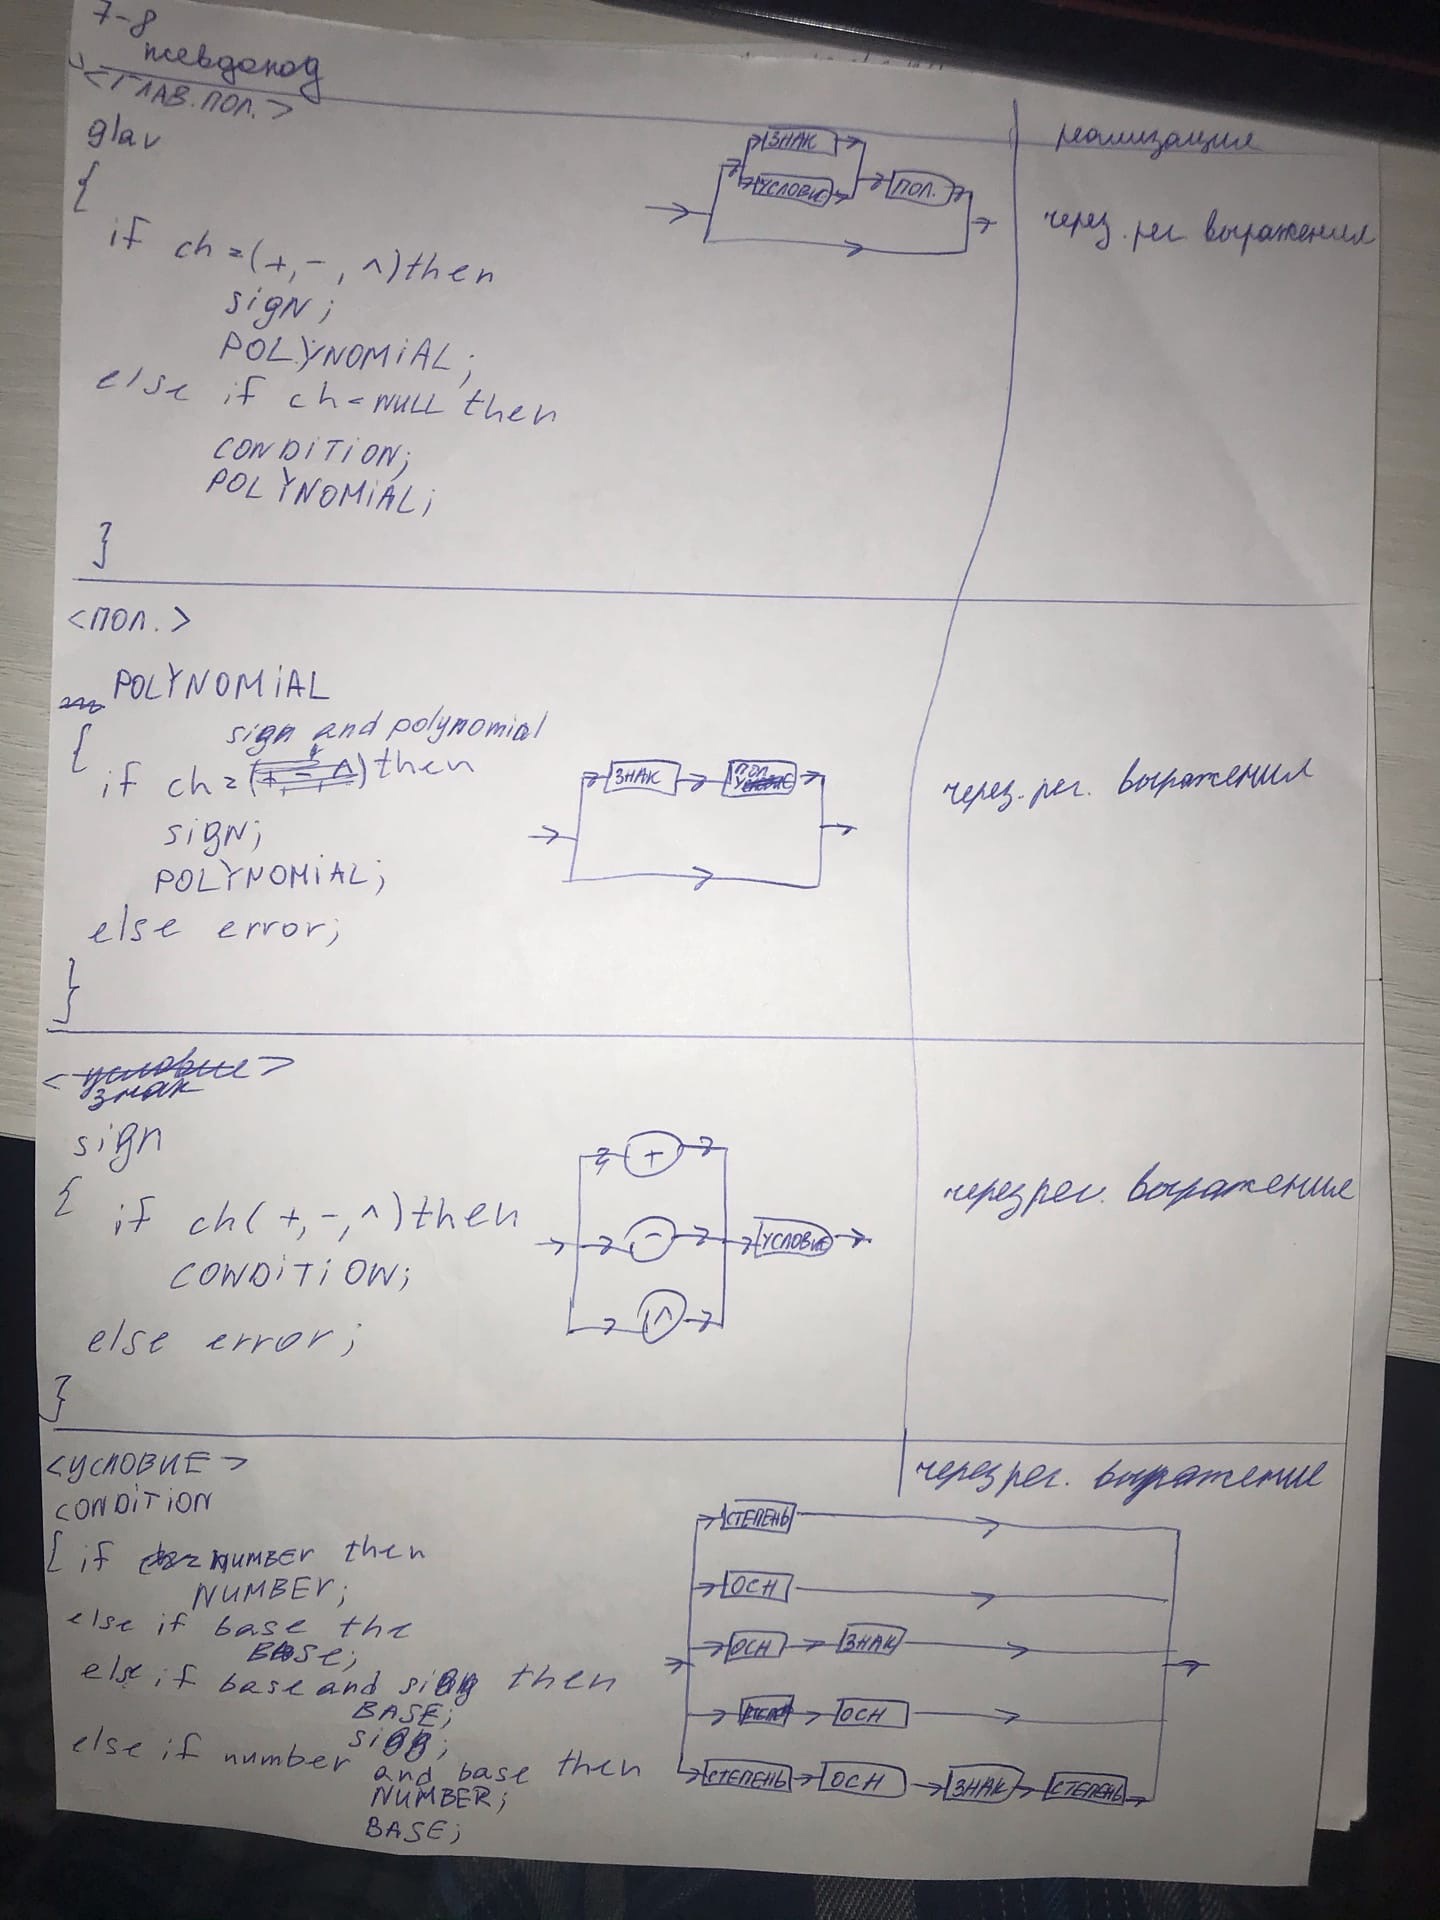 7-8
псевдокод
<ГЛАВ.ПОЛ.>
glav
{
if ch=(+,-,^)then
SigN;
POLYNOMiAL;
else if ch=NULL then
CONDiTiON;
POLYNOMiAL;
}
ЗНАК
УСЛОВИЕ
ПОЛ.
реализация
через. рег. выражения
<ПОЛ.>
POLYNOMiAL
{
sign and polynomial
if ch=(+,-,^)then
SigN;
POLYNOMiAL;
else error;
}
ЗНАК
ПОЛ
через. рег. выражения
<условие>
знак
sign
{ if ch(+,-,^)then
CONDiTiON;
else error;
}
+
-
^
УСЛОВИЕ
через рег. выражение
<УСЛОВИЕ>
CONDiTiON
{ if NUMBER then
NUMBER;
else if base the
BASe;
else if base and sign then
BASE;
sign;
else if number and base then
NUMBER;
BASE;
через рег. выражение
СТЕПЕНЬ
ОСН
ОСН ЗНАК
ОСН
СТЕПЕНЬ ОСН ЗНАК СТЕПЕНЬ